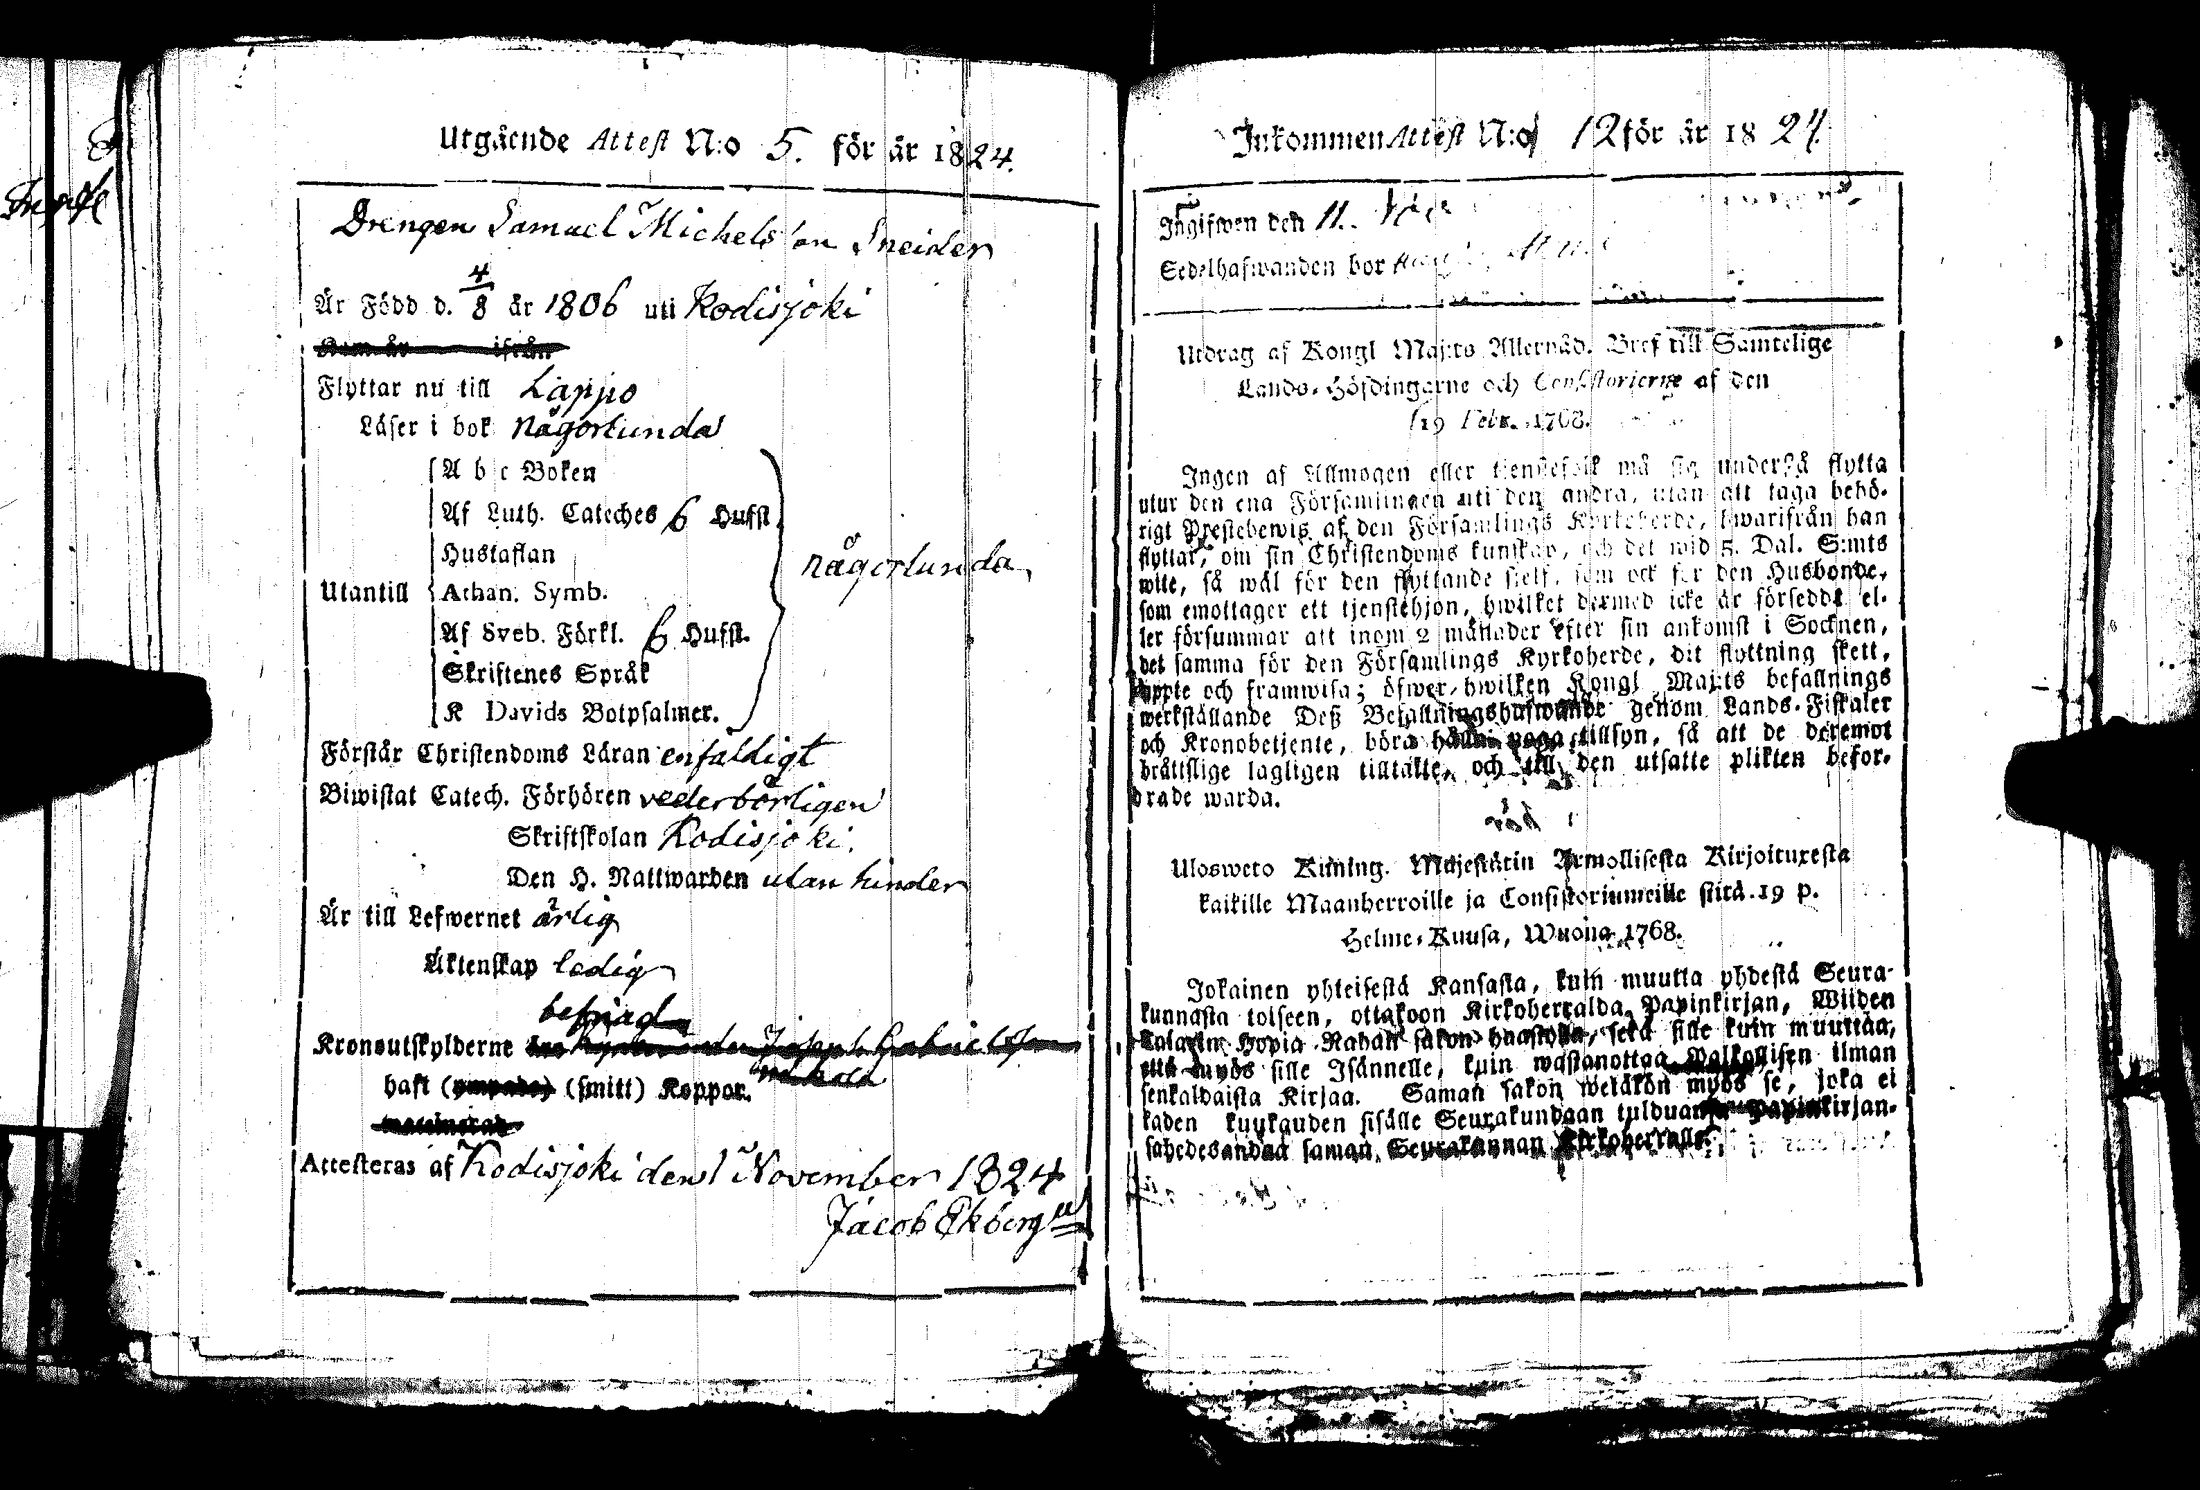 Utgående Attest N:o 5. för år 1824.
Drengen Samuel Michelsson Sneider
Är Född d. 4/8 år 1806 uti Kodisjoki
Kom år ifrån
Flyttar nu till Lappo
Läser i bok någorlunda
A b c Boken
Af Luth. Cateches 6 Hufst.
Hustaflan
Utantill Athan. Symb.
Af Sveb. Förkl. 6 Hufst.
Skriftenes Språk
K Davids Botpsalmer.
någorlunda
Förstår Christendoms Läran enfaldigt
Biwistat Catech. Förhören vederbörligen
Skriftskolan Kodisjoki.
Den H. Nattwarden utan hinder
Är till Lefwernet ärlig
Äktenskap ledig
befriad
Kronoutskylderne
haft (ympade) (smitt) Koppor.
Attesteras af Kodisjoki den 1 November 1824
Jacob Ekberg
Inkommen Attest N:o 12 för år 1824.
Ingifwen den 11.
Sedelhafwanden bor
Utdrag af Kongl Maj:ts Allernåd. Bref till Samtelige
Lands-Höfdingarne och Consistorierne af den
19 Febr. 1768.
Ingen af Allmogen eller tjenstefolk må sig understå flytta
utur den ena Församlingen uti den andra, utan att taga behö-
rigt Prestebewis af den Församlings Kyrkoherde, hwarifrån han
flyttar, om sin Christendoms kunskap, och det wid 5. Dal. S:mts
wite, så wäl för den flyttande sielf, som ock för den Husbonde,
som emottager ett tjenstehjon, hwilket dermed icke är försedde el-
ler försummar att inom 2 månader efter sin ankomst i Socknen,
det samma för den Församlings Kyrkoherde, dit flyttning skett,
uppte och framwisa; öfwer hwilken Kongl Maj:ts befallnings
werkställande Deß Befallningshafwande genom Lands-Fiskaler
och Kronobetjente, böra hålla noga tillsyn, så att de deremot
bråtislige lagligen tilltalte, och till den utsatte plikten befor-
drade warda.
Ulosweto Kuning. Majestätin Armollisesta Kirjoituxesta
kaikille Maanherroille ja Consistoriumeille siitä 19 p.
Helme-Kuusa, Wuonna 1768.
Jokainen yhteisestä Kansasta, kuin muutta yhdestä Seura-
kunnasta toiseen, ottakoon Kirkoherralda Papinkirjan, Wiiden
Talarin Hopia Rahan sakon haastolla, sekä sille kuin muuttaa,
että myös sille Isännelle, kuin wastanottaa Palkollisen ilman
senkaldaista Kirjaa. Saman sakon wetäkön myös se, joka ei
kahden kuukauden sisälle Seurakundaan tulduansa Papinkirjan-
sa saman Seurakunnan Kirkoherralle.